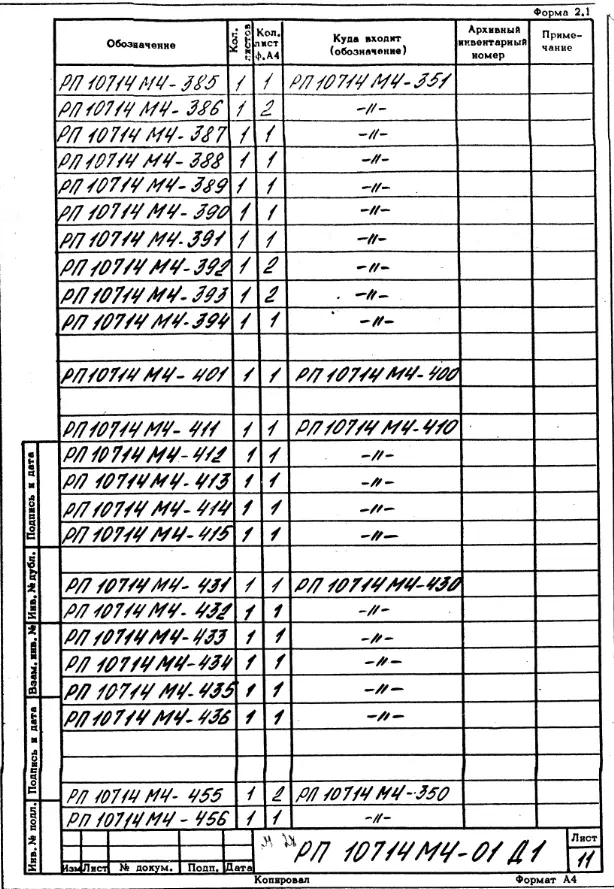 Форма 2.1
Обозначение Кол. листов Кол. лист ф.А4 Куда входит (обозначение) Архивный инвентарный номер Примечание
РП 10714 М4-385 1 1 РП 10714 М4-351
РП 10714 М4-386 1 2 -//-
РП 10714 М4-387 1 1 -//-
РП 10714 М4-388 1 1 -//-
РП 10714 М4-389 1 1 -//-
РП 10714 М4-390 1 1 -//-
РП 10714 М4-391 1 1 -//-
РП 10714 М4-392 1 2 -//-
РП 10714 М4-393 1 2 -//-
РП 10714 М4-394 1 1 -//-
РП 10714 М4-401 1 1 РП 10714 М4-400
РП 10714 М4-411 1 1 РП 10714 М4-410
РП 10714 М4-412 1 1 -//-
РП 10714 М4-413 1 1 -//-
РП 10714 М4-414 1 1 -//-
РП 10714 М4-415 1 1 -//-
РП 10714 М4-431 1 1 РП 10714 М4-430
РП 10714 М4-432 1 1 -//-
РП 10714 М4-433 1 1 -//-
РП 10714 М4-434 1 1 -//-
РП 10714 М4-435 1 1 -//-
РП 10714 М4-436 1 1 -//-
РП 10714 М4-455 1 2 РП 10714 М4-350
РП 10714 М4-456 1 1 -//-
Подпись и дата
Инв. № дубл.
Взам. инв. №
Подпись и дата
Инв. № подл.
РП 10714 М4-01 Д1
Лист
11
Изм Лист № докум. Подп. Дата
Копировал Формат А4